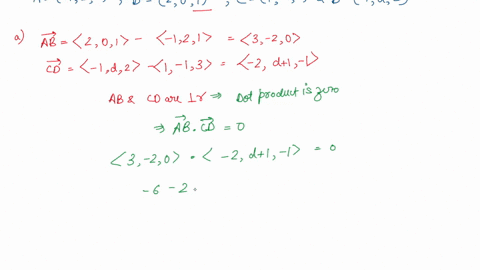 a) AB = <2, 0, 1> - <-1, 2, 1> = <3, -2, 0>
CD = <-1, d, 2> - <1, -1, 3> = <-2, d+1, -1>
AB & CD are ⊥r ⇒ Dot product is zero
⇒ AB . CD = 0
<3, -2, 0> • <-2, d+1, -1> = 0
-6 -2